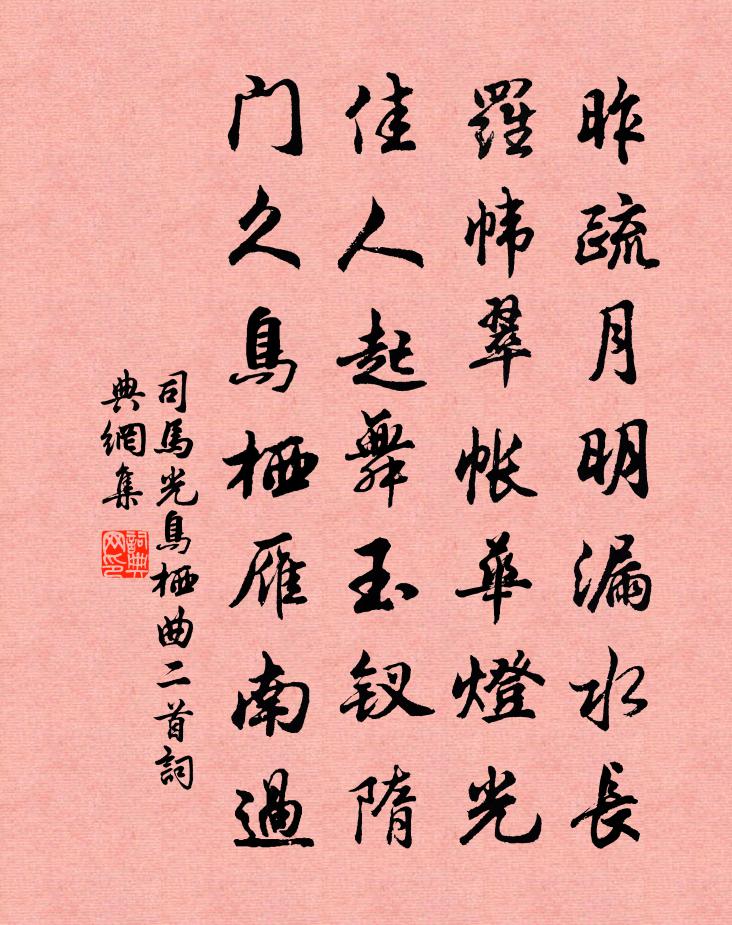 昨疏月明漏水長
羅幃翠帳華燈光
佳人起舞玉钗隋
门久烏栖雁南過
司馬光烏栖曲二首詞
典網集
詞典
网印